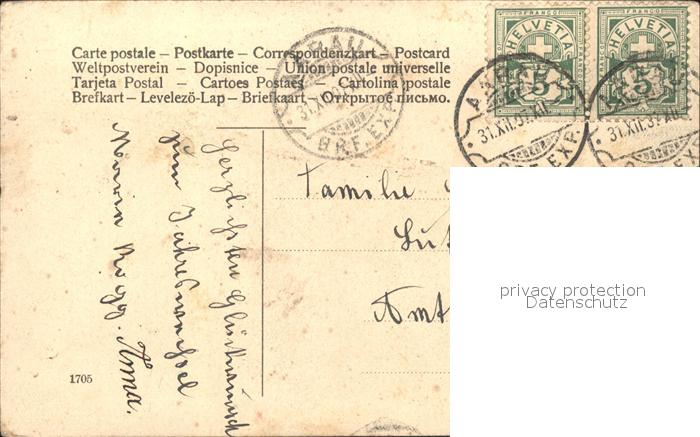 Carte postale – Postkarte – Correspondenzkart – Postcard
Weltpostverein – Dopisnice – Union postale universelle
Tarjeta Postal – Cartoes Postaes – Cartolina postale
Brefkart – Levelező-Lap – Briefkaart – Открытое письмо.
FRANCO FRANCO
HELVETIA HELVETIA
5 5
AARAU
31.XII.
BRF.EXP.
31.XII.
31.XII.
Herzlichsten Glückwunsch
zum Jahreswechsel
Anna.
Familie
Amt
1705
privacy protection
Datenschutz